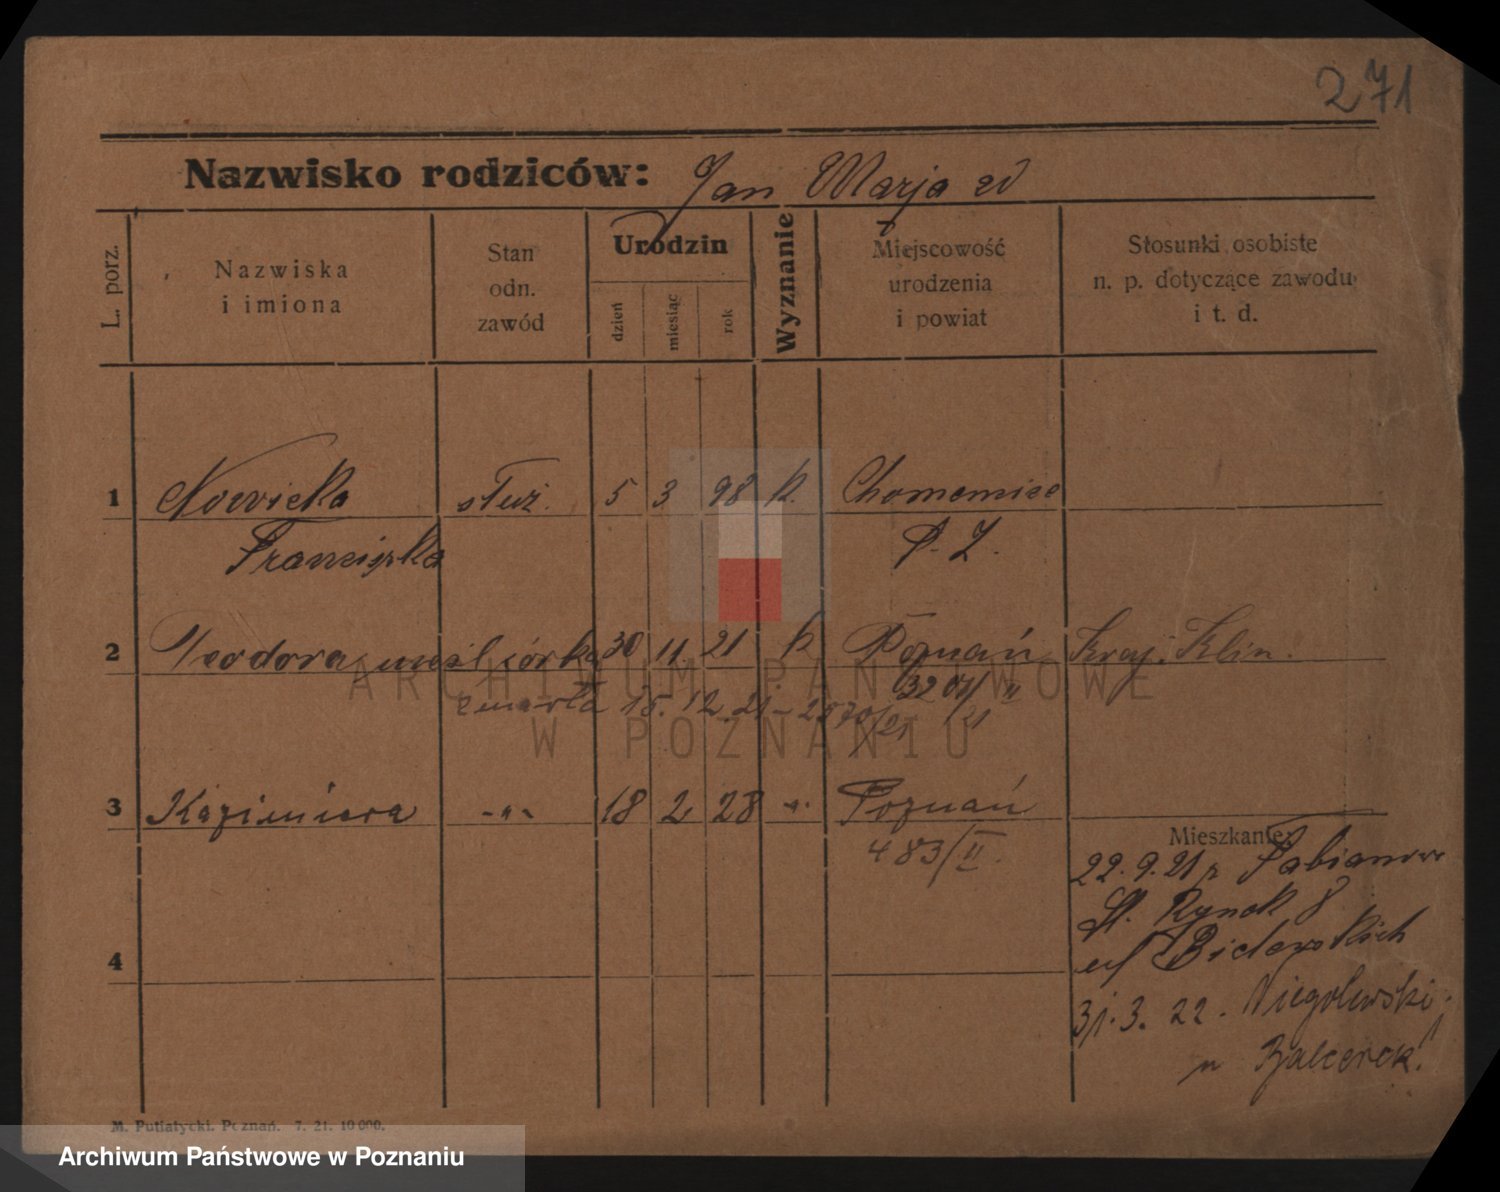 271
Nazwisko rodziców: Jan Marja
L. porz.
Nazwiska
i imiona
Stan
odn.
zawód
Urodzin
dzień
miesiąc
rok
Wyznanie
Miejscowość
urodzenia
i powiat
Stosunki osobiste
n. p. dotyczące zawodu
i t. d.
1 Nowicka służ. 5 3 98 k. Chomencice
Franciszka P. Z.
2 Teodora nieśl. córka 30 11. 21 k Poznań Kraj. Klin.
zmarła 15. 12. 21
3 Kazimiera -"- 18 2 28 " Poznań
483/II.
Mieszkanie:
22. 9. 21 z Fabianowo
St. Rynek 8
31. 3. 22. Niegolewskich
4
M. Putiatycki. Poznań. 7. 21. 10 000.
ARCHIWUM PAŃSTWOWE
W POZNANIU
Archiwum Państwowe w Poznaniu